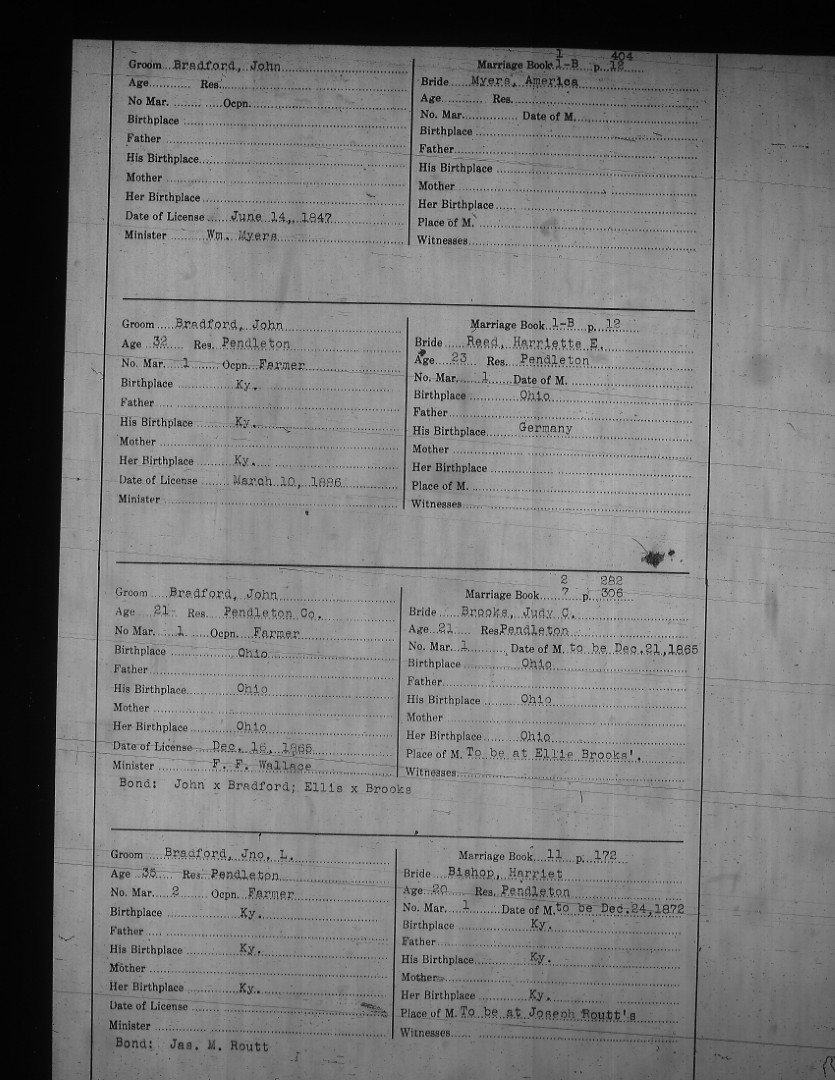 1 404
Groom Bradford, John Marriage Book 1-B p. 12
Age Res. Bride Myers, America
No Mar. Ocpn. Age Res.
Birthplace No. Mar. Date of M.
Father Birthplace
His Birthplace Father
Mother His Birthplace
Her Birthplace Mother
Date of License June 14, 1847 Her Birthplace
Minister Wm. Myers Place of M.
Witnesses
Groom Bradford, John Marriage Book 1-B p. 12
Age 32 Res. Pendleton Bride Reed, Harriette E.
No. Mar. 1 Ocpn. Farmer Age 23 Res. Pendleton
Birthplace Ky. No. Mar. 1 Date of M.
Father Birthplace Ohio
His Birthplace Ky. Father
Mother His Birthplace Germany
Her Birthplace Ky. Mother
Date of License March 10, 1886 Her Birthplace
Minister Place of M.
Witnesses
2 282
Groom Bradford, John Marriage Book 7 p. 306
Age 21 Res. Pendleton Co. Bride Brooks, Judy C.
No Mar. 1 Ocpn. Farmer Age 21 Res. Pendleton
Birthplace Ohio No. Mar. 1 Date of M. to be Dec. 21, 1865
Father Birthplace Ohio
His Birthplace Ohio Father
Mother His Birthplace Ohio
Her Birthplace Ohio Mother
Date of License Dec. 16, 1865 Her Birthplace Ohio
Minister F. F. Wallace Place of M. To be at Ellis Brooks'.
Bond: John x Bradford; Ellis x Brooks Witnesses
Groom Bradford, Jno. L. Marriage Book 11 p. 172
Age 35 Res. Pendleton Bride Bishop, Harriet
No. Mar. 2 Ocpn. Farmer Age 20 Res. Pendleton
Birthplace Ky. No. Mar. 1 Date of M. to be Dec. 24, 1872
Father Birthplace Ky.
His Birthplace Ky. Father
Mother His Birthplace Ky.
Her Birthplace Ky. Mother
Date of License Her Birthplace Ky.
Minister Place of M. To be at Joseph Routt's
Bond: Jas. M. Routt Witnesses